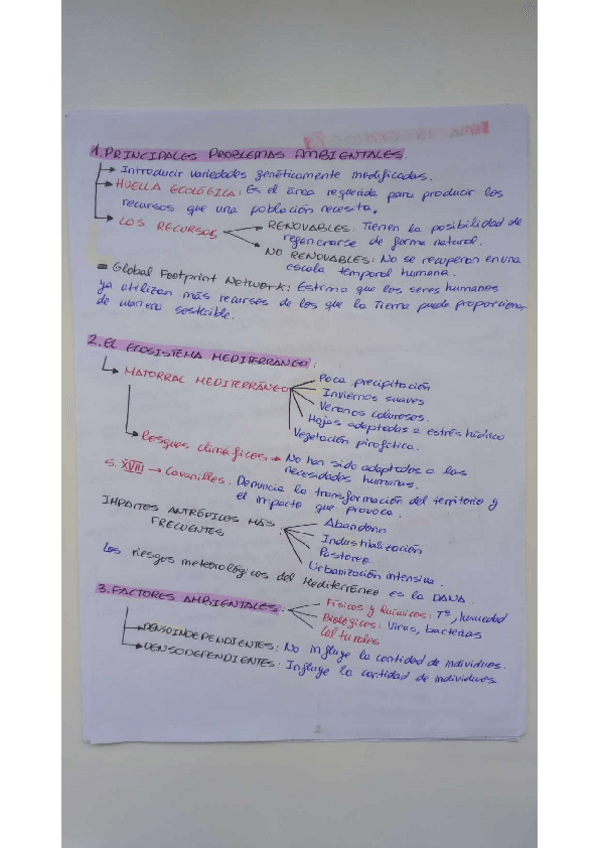 1. PRINCIPALES PROBLEMAS AMBIENTALES.
Introducir variedades genéticamente modificadas.
HUELLA ECOLÓGICA: Es el área requerida para producir los
recursos que una población necesita.
LOS RECURSOS
RENOVABLES: Tienen la posibilidad de
regenerarse de forma natural.
NO RENOVABLES: No se recuperan en una
escala temporal humana.
Global Footprint Network: Estima que los seres humanos
ya utilizan más recursos de los que la Tierra puede proporcionar
de manera sostenible.
2. EL ECOSISTEMA MEDITERRÁNEO:
MATORRAL MEDITERRÁNEO
Poca precipitación
Inviernos suaves
Veranos calurosos.
Hojas adaptadas a estrés hídrico
Vegetación pirofítica.
Bosques climáficos → No han sido adaptados a las
necesidades humanas.
S. XVIII → Cavanilles. Denuncia la transformación del territorio y
el impacto que provoca.
IMPACTOS ANTRÓPICOS MÁS
FRECUENTES
Abandono
Industrialización
Pastoreo
Urbanización intensiva.
Los riesgos meteorológicos del Mediterráneo es la DANA.
3. FACTORES AMBIENTALES.
Físicos y Químicos: Tª, humedad
Biológicos: Virus, bacterias
Culturales
DENSOINDEPENDIENTES: No influye la cantidad de individuos.
DENSODEPENDIENTES: Influye la cantidad de individuos
2